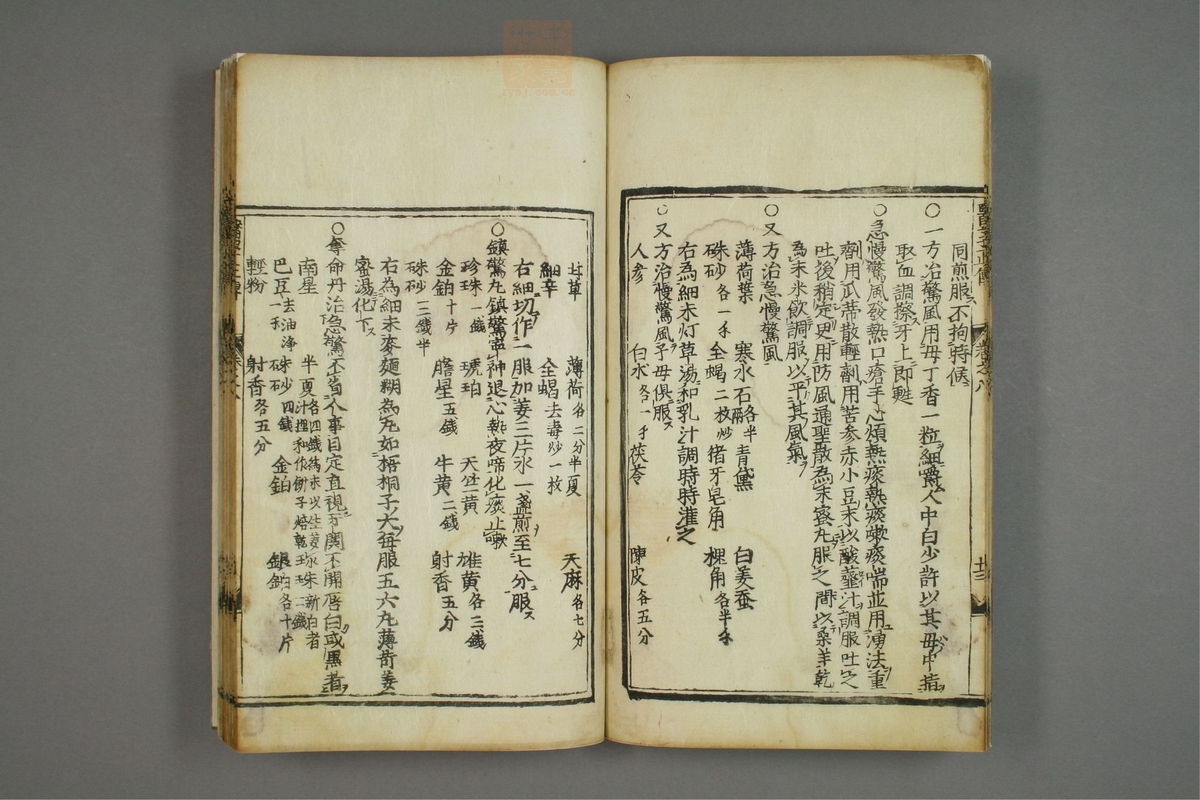 同煎服不拘時候
○一方治驚風用母丁香一粒細嚼人中白少許以其母中指
取血調擦牙上即甦
○急慢驚風發熱口瘡手心煩熱痰熱痰嗽痰喘並用湧法重
劑用瓜蒂散輕劑用苦参赤小豆末以酸虀汁調服吐之
吐後稍定更用防風通聖散為末蜜丸服之間以桑羊乾
為末米飲調服以平其風氣
○又方治急慢驚風
薄荷葉 寒水石各半兩 青黛 白姜蚕
硃砂各一手 全蝎二枚炒 猪牙皂角 槐角各半手
右為細末灯草湯和乳汁調時時灌之
○又方治慢驚風子母俱服
人参 白朮各一手 茯苓 陳皮各五分
甘草 薄荷各二分 半夏 天麻各七分
細辛 全蝎去毒炒一枚
右細切作一服加姜三片水一盞煎至七分服
○鎮驚丸鎮驚寧神退心熱夜啼化痰止嗽
珍珠一錢 琥珀 天竺黄 雄黄各三錢
金鉑十片 膽星五錢 牛黄二錢 射香五分
硃砂三錢半
右為細末麥麵糊為丸如梧桐子大每服五六丸薄荷姜
蜜湯化下
○奪命丹治急驚不省人事目定直視牙関不開唇白或黒者
南星 半夏各四錢為末以生姜
巴豆去油淨一手 硃砂四錢 金鉑 銀鉑各十片
輕粉 射香各五分
醫學正傳
卷之八